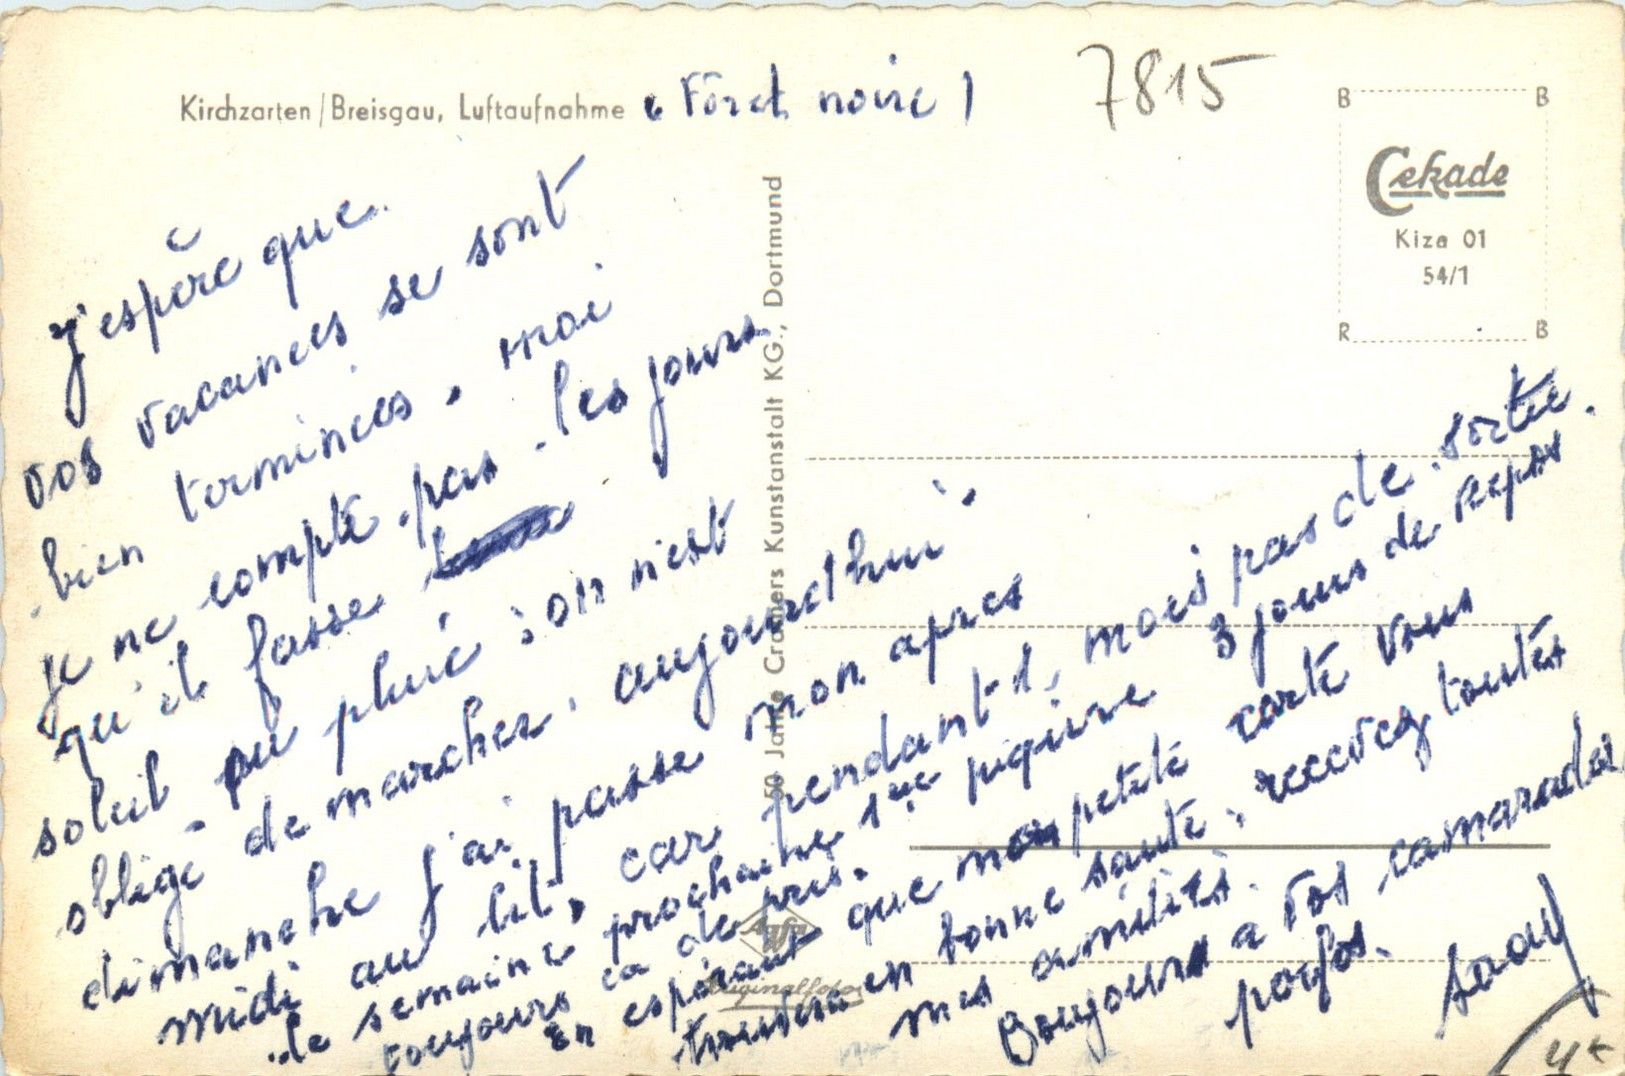 Kirchzarten/Breisgau, Luftaufnahme ( Fôret noire )
7815
B B
Cekade
Kiza 01
54/1
R B
50 Jahre Cramers Kunstanstalt KG., Dortmund
Agfa
Originalfoto
J'espère que
vos vacances se sont
bien terminées, moi
je ne compte pas les jours
qu'il fasse
soleil ou pluie on n'est
obligé de marcher, aujourd'hui
dimanche j'ai passe mon apres
midi au lit, car pendant 1 mois pas de sortie.
la semaine prochaine 1ere piqure 3 jours de repos
toujours ca de pris.
En espérant que mon petite carte vous
trouvera en bonne santé, recevez toutes
mes amitiés.
Bonjours a vos camarades
profs.
4€